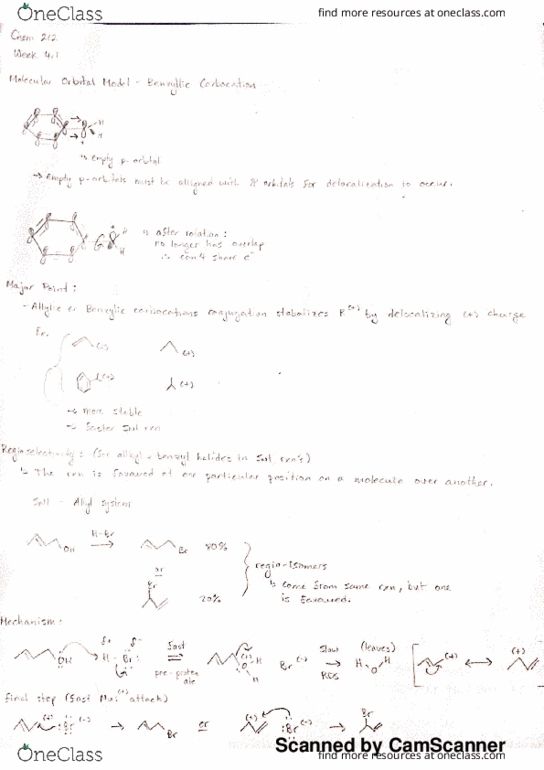 OneClass
find more resources at oneclass.com
Chem 212
Week 4.1
Molecular Orbital Model - Benzylic Carbocation
H
H
↳ empty p-orbital
→ empty p-orbitals must be alligned with π orbitals for delocalization to occur.
H
↳ after rotation:
no longer has overlap
∴ can't share e⁻
Major Point:
- Allylic or Benzylic carbocations conjugation stabalizes R(+) by delocalizing (+) charge
Ex.
(+)
(+)
(+)
(+)
→ more stable
→ faster SN1 rxn
Regioselectivity: (for allyl + benzyl halides in SN1 rxn's)
↳ The rxn is favoured at one particular position on a molecule over another.
SN1 - Allyl system
OH
H-Br
Br 80%
or
Br
20%
regio-isomers
↳ come from same rxn, but one
is favoured.
Mechanism:
OH
δ+ δ-
H-Br
fast
pre-protonate
(+)
O
H
H
Br(-)
slow
RDS
(leaves)
H O H
(+)
(+)
final step (fast Nuc attack)
(+)
Br(-)
Br
or
(+)
Br(-)
Br
Scanned by CamScanner
OneClass
find more resources at oneclass.com